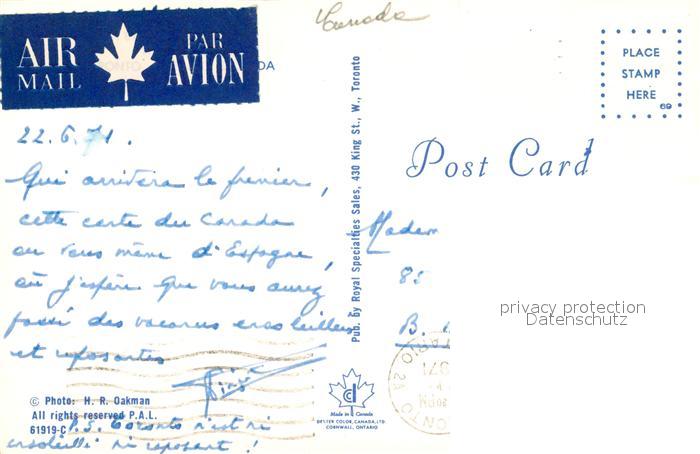 Canada
AIR MAIL
PAR AVION
DA
PLACE
STAMP
HERE
69
Post Card
22.6.71.
Qui arrivera le premier,
cette carte du Canada
ou vous même d'Espagne,
où j'espère que vous aurez
passé des vacances ensoleillées
et reposantes
Pub. by Royal Specialties Sales, 430 King St., W., Toronto
Madam
85
B.
privacy protection
Datenschutz
© Photo: H. R. Oakman
All rights reserved P.A.L.
61919-C
P.S. Toronto n'est ni
ensoleillé ni reposant !
Made in Canada
DEXTER COLOR, CANADA, LTD.
CORNWALL, ONTARIO